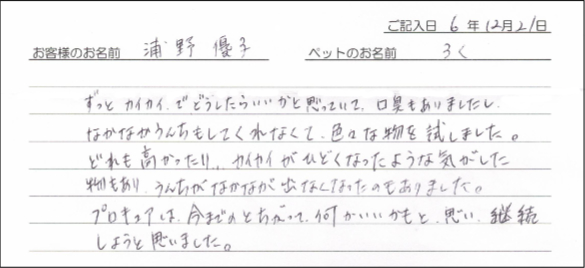 ご記入日 6 年 12月 21日
お客様のお名前 浦野 優子 ペットのお名前 ろく
ずっと カイカイ、でどうしたらいいかと思っていて、口臭もありましたし、
なかなかうんちもしてくれなくて、色々な物を試しました。
どれも高かったり、カイカイがひどくなったような気がした
物もあり、うんちがなかなか出なくなったのもありました。
プロキュアは、今までのとちがって、何かいいかもと、思い、継続
しようと思いました。